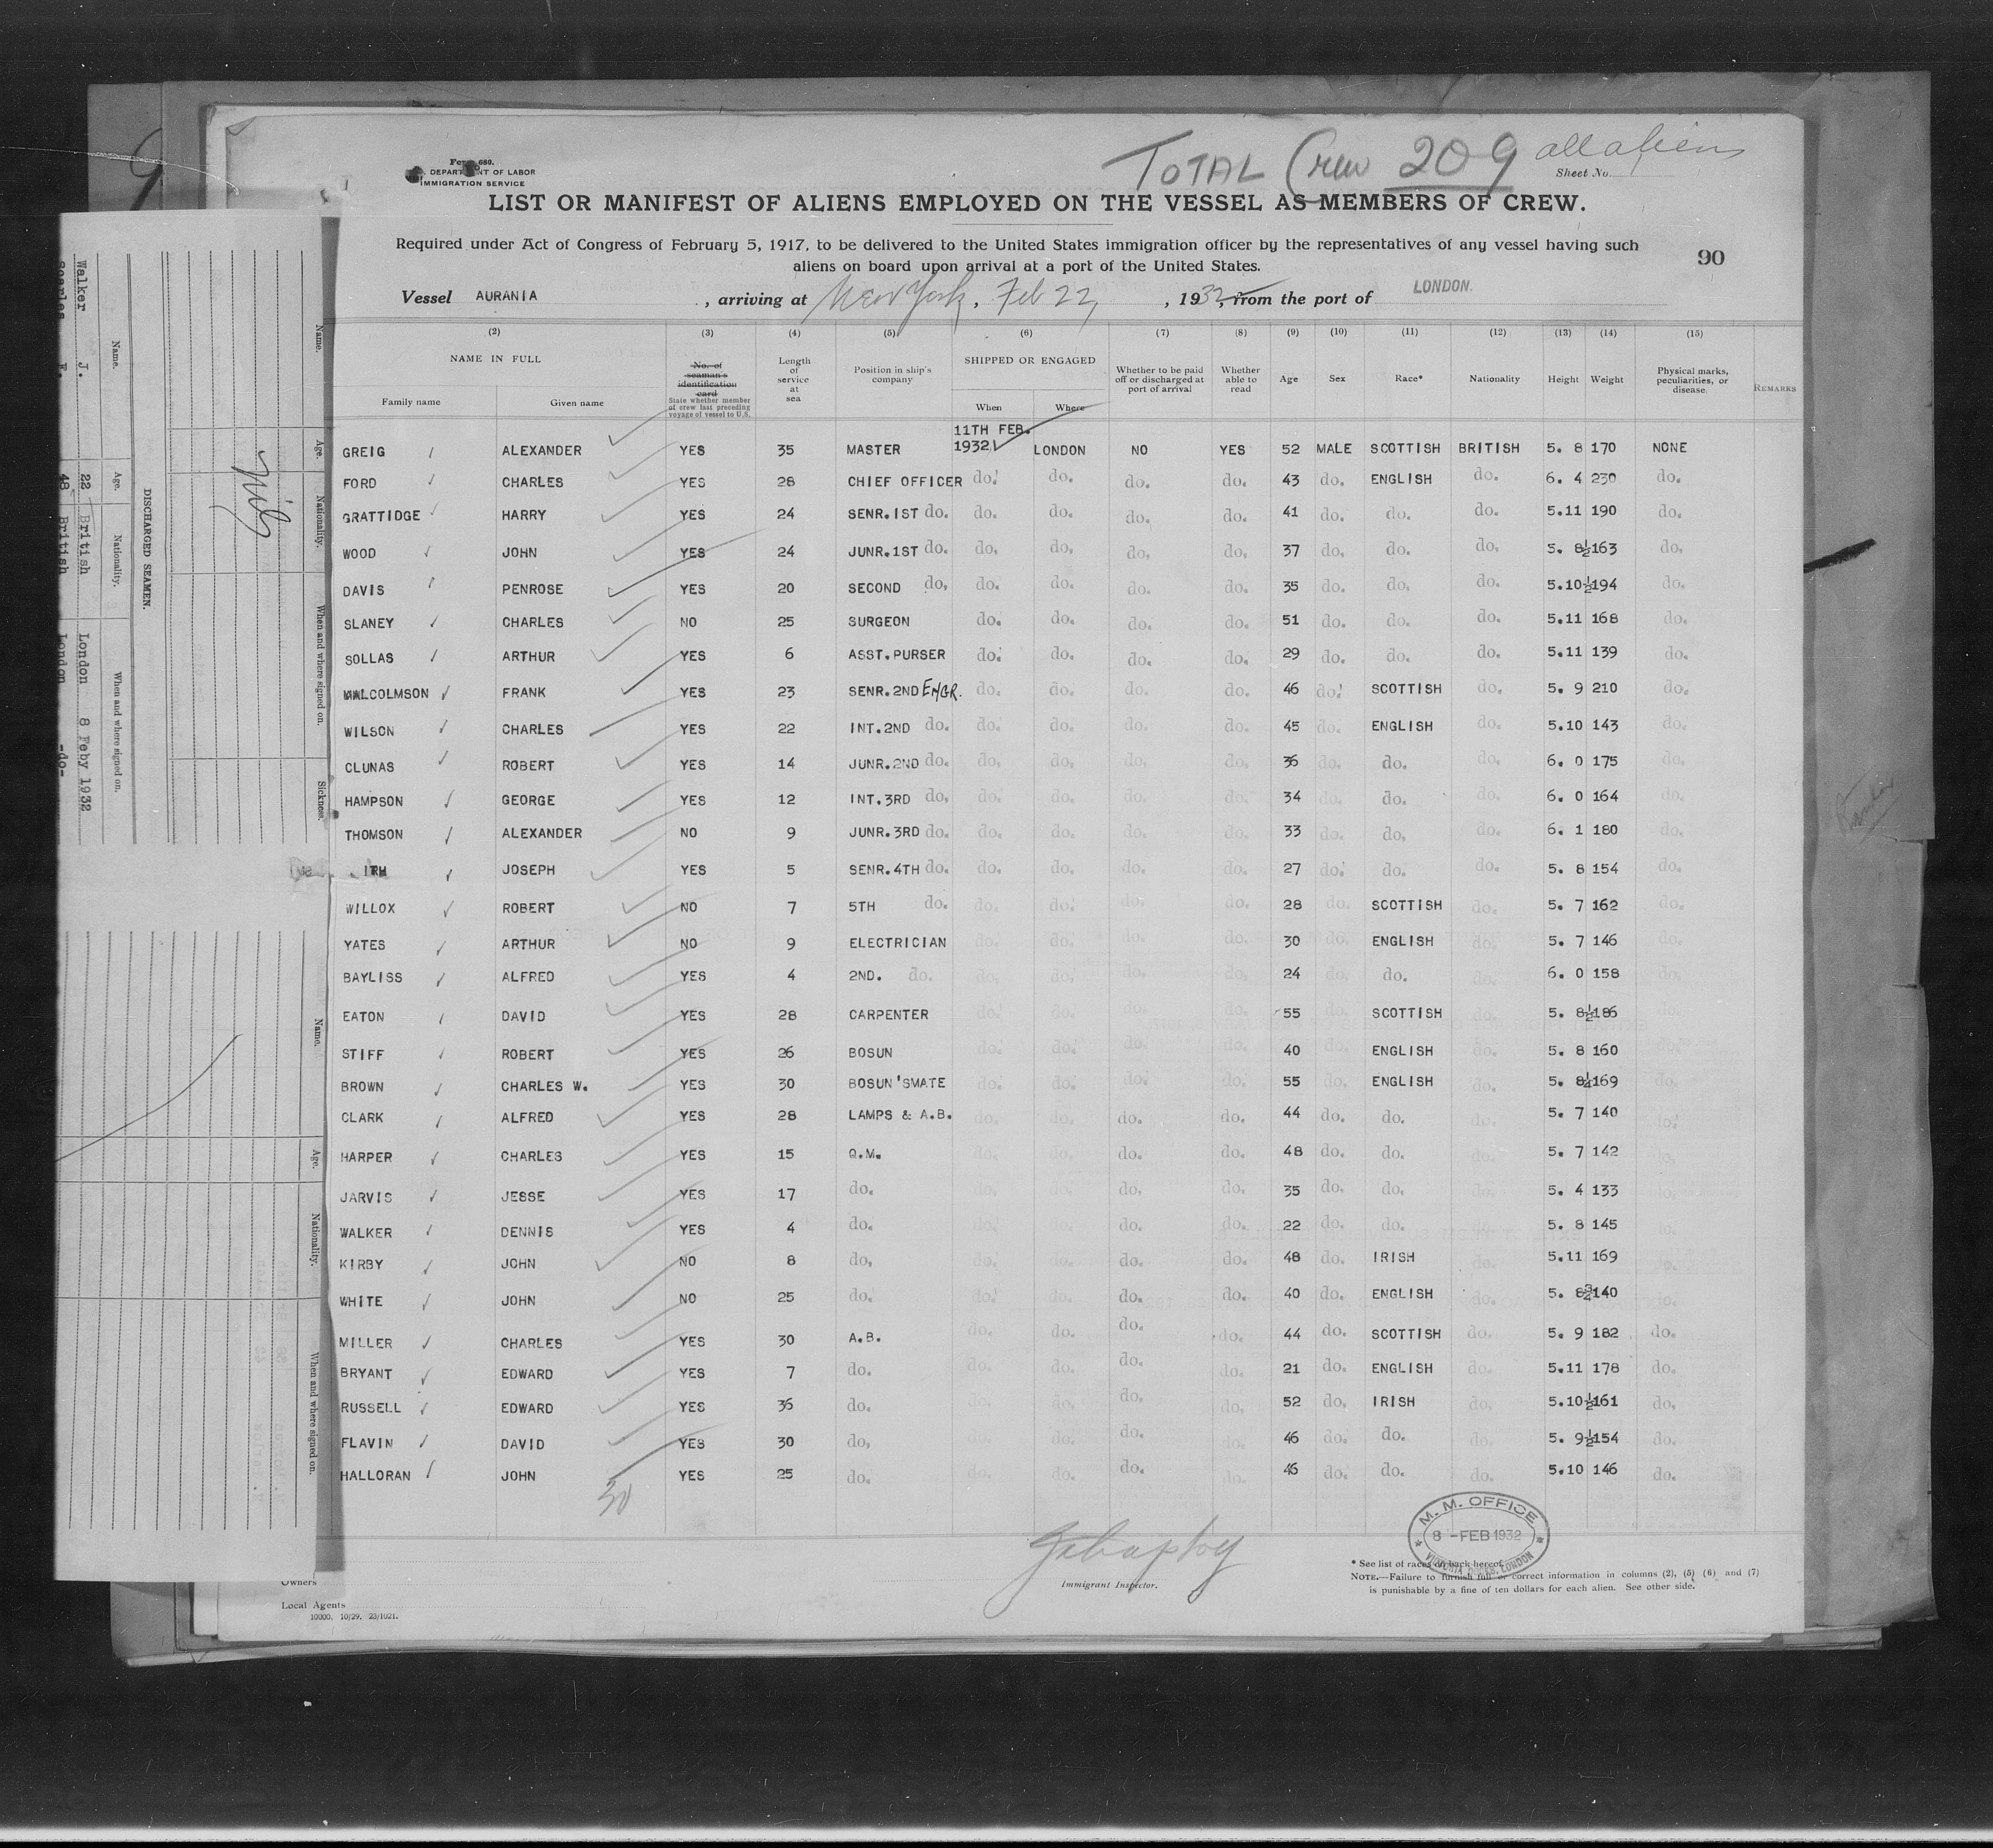 TOTAL Crew 209 all aliens
Form 680.
DEPARTMENT OF LABOR
IMMIGRATION SERVICE
Sheet No.
LIST OR MANIFEST OF ALIENS EMPLOYED ON THE VESSEL AS MEMBERS OF CREW.
Required under Act of Congress of February 5, 1917, to be delivered to the United States immigration officer by the representatives of any vessel having such
aliens on board upon arrival at a port of the United States.
90
Vessel AURANIA, arriving at New York, Feb 22, 1932, from the port of LONDON.
(2) (3) (4) (5) (6) (7) (8) (9) (10) (11) (12) (13) (14) (15)
NAME IN FULL
Family name
Given name
No. of seaman's identification card
State whether member of crew last preceding voyage of vessel to U.S.
Length of service at sea
Position in ship's company
SHIPPED OR ENGAGED
When
Where
Whether to be paid off or discharged at port of arrival
Whether able to read
Age
Sex
Race*
Nationality
Height
Weight
Physical marks, peculiarities, or disease.
REMARKS
GREIG ALEXANDER YES 35 MASTER 11TH FEB. 1932 LONDON NO YES 52 MALE SCOTTISH BRITISH 5. 8 170 NONE
FORD CHARLES YES 28 CHIEF OFFICER do. do. do. do. 43 do. ENGLISH do. 6. 4 230 do.
GRATTIDGE HARRY YES 24 SENR.1ST do. do. do. do. do. 41 do. do. do. 5.11 190 do.
WOOD JOHN YES 24 JUNR.1ST do. do. do. do. do. 37 do. do. do. 5. 8½ 163 do.
DAVIS PENROSE YES 20 SECOND do. do. do. do. do. 35 do. do. do. 5.10½ 194 do.
SLANEY CHARLES NO 25 SURGEON do. do. do. do. 51 do. do. do. 5.11 168 do.
SOLLAS ARTHUR YES 6 ASST.PURSER do. do. do. do. 29 do. do. do. 5.11 139 do.
MALCOLMSON FRANK YES 23 SENR.2ND ENGR. do. do. do. do. 46 do. SCOTTISH do. 5. 9 210 do.
WILSON CHARLES YES 22 INT.2ND do. do. do. do. do. 45 do. ENGLISH do. 5.10 143 do.
CLUNAS ROBERT YES 14 JUNR.2ND do. do. do. do. do. 36 do. do. do. 6. 0 175 do.
HAMPSON GEORGE YES 12 INT.3RD do. do. do. do. do. 34 do. do. do. 6. 0 164 do.
THOMSON ALEXANDER NO 9 JUNR.3RD do. do. do. do. do. 33 do. do. do. 6. 1 180 do.
JOSEPH YES 5 SENR.4TH do. do. do. do. do. 27 do. do. do. 5. 8 154 do.
WILLOX ROBERT NO 7 5TH do. do. do. do. do. 28 do. SCOTTISH do. 5. 7 162 do.
YATES ARTHUR NO 9 ELECTRICIAN do. do. do. do. 30 do. ENGLISH do. 5. 7 146 do.
BAYLISS ALFRED YES 4 2ND. do. do. do. do. do. 24 do. do. do. 6. 0 158 do.
EATON DAVID YES 28 CARPENTER do. do. do. do. 55 do. SCOTTISH do. 5. 8½ 186 do.
STIFF ROBERT YES 26 BOSUN do. do. do. do. 40 do. ENGLISH do. 5. 8 160 do.
BROWN CHARLES W. YES 30 BOSUN'SMATE do. do. do. do. 55 do. ENGLISH do. 5. 8¼ 169 do.
CLARK ALFRED YES 28 LAMPS & A.B. do. do. do. do. 44 do. do. do. 5. 7 140 do.
HARPER CHARLES YES 15 Q.M. do. do. do. do. 48 do. do. do. 5. 7 142 do.
JARVIS JESSE YES 17 do. do. do. do. do. 35 do. do. do. 5. 4 133 do.
WALKER DENNIS YES 4 do. do. do. do. do. 22 do. do. do. 5. 8 145 do.
KIRBY JOHN NO 8 do. do. do. do. do. 48 do. IRISH do. 5.11 169 do.
WHITE JOHN NO 25 do. do. do. do. do. 40 do. ENGLISH do. 5. 8 140 do.
MILLER CHARLES YES 30 A.B. do. do. do. do. 44 do. SCOTTISH do. 5. 9 182 do.
BRYANT EDWARD YES 7 do. do. do. do. do. 21 do. ENGLISH do. 5.11 178 do.
RUSSELL EDWARD YES 36 do. do. do. do. do. 52 do. IRISH do. 5.10½ 161 do.
FLAVIN DAVID YES 30 do. do. do. do. do. 46 do. do. do. 5. 9½ 154 do.
HALLORAN JOHN YES 25 do. do. do. do. do. 46 do. do. do. 5.10 146 do.
30
M. M. OFFICE
8 -FEB 1932
VICTORIA DOCKS, LONDON
Immigrant Inspector.
* See list of races on back hereof.
NOTE.—Failure to furnish full or correct information in columns (2), (5) (6) and (7)
is punishable by a fine of ten dollars for each alien. See other side.
Owners
Local Agents
10000. 10/29. 23/1021.
DISCHARGED SEAMEN.
Name. Age. Nationality. When and where signed on.
Walker J. 22 British London 8 Feby 1932
Searles F. 48 British London -do-
Name. Age. Nationality. When and where signed on. Sickness.
Nil
Name. Age. Nationality. When and where signed on.